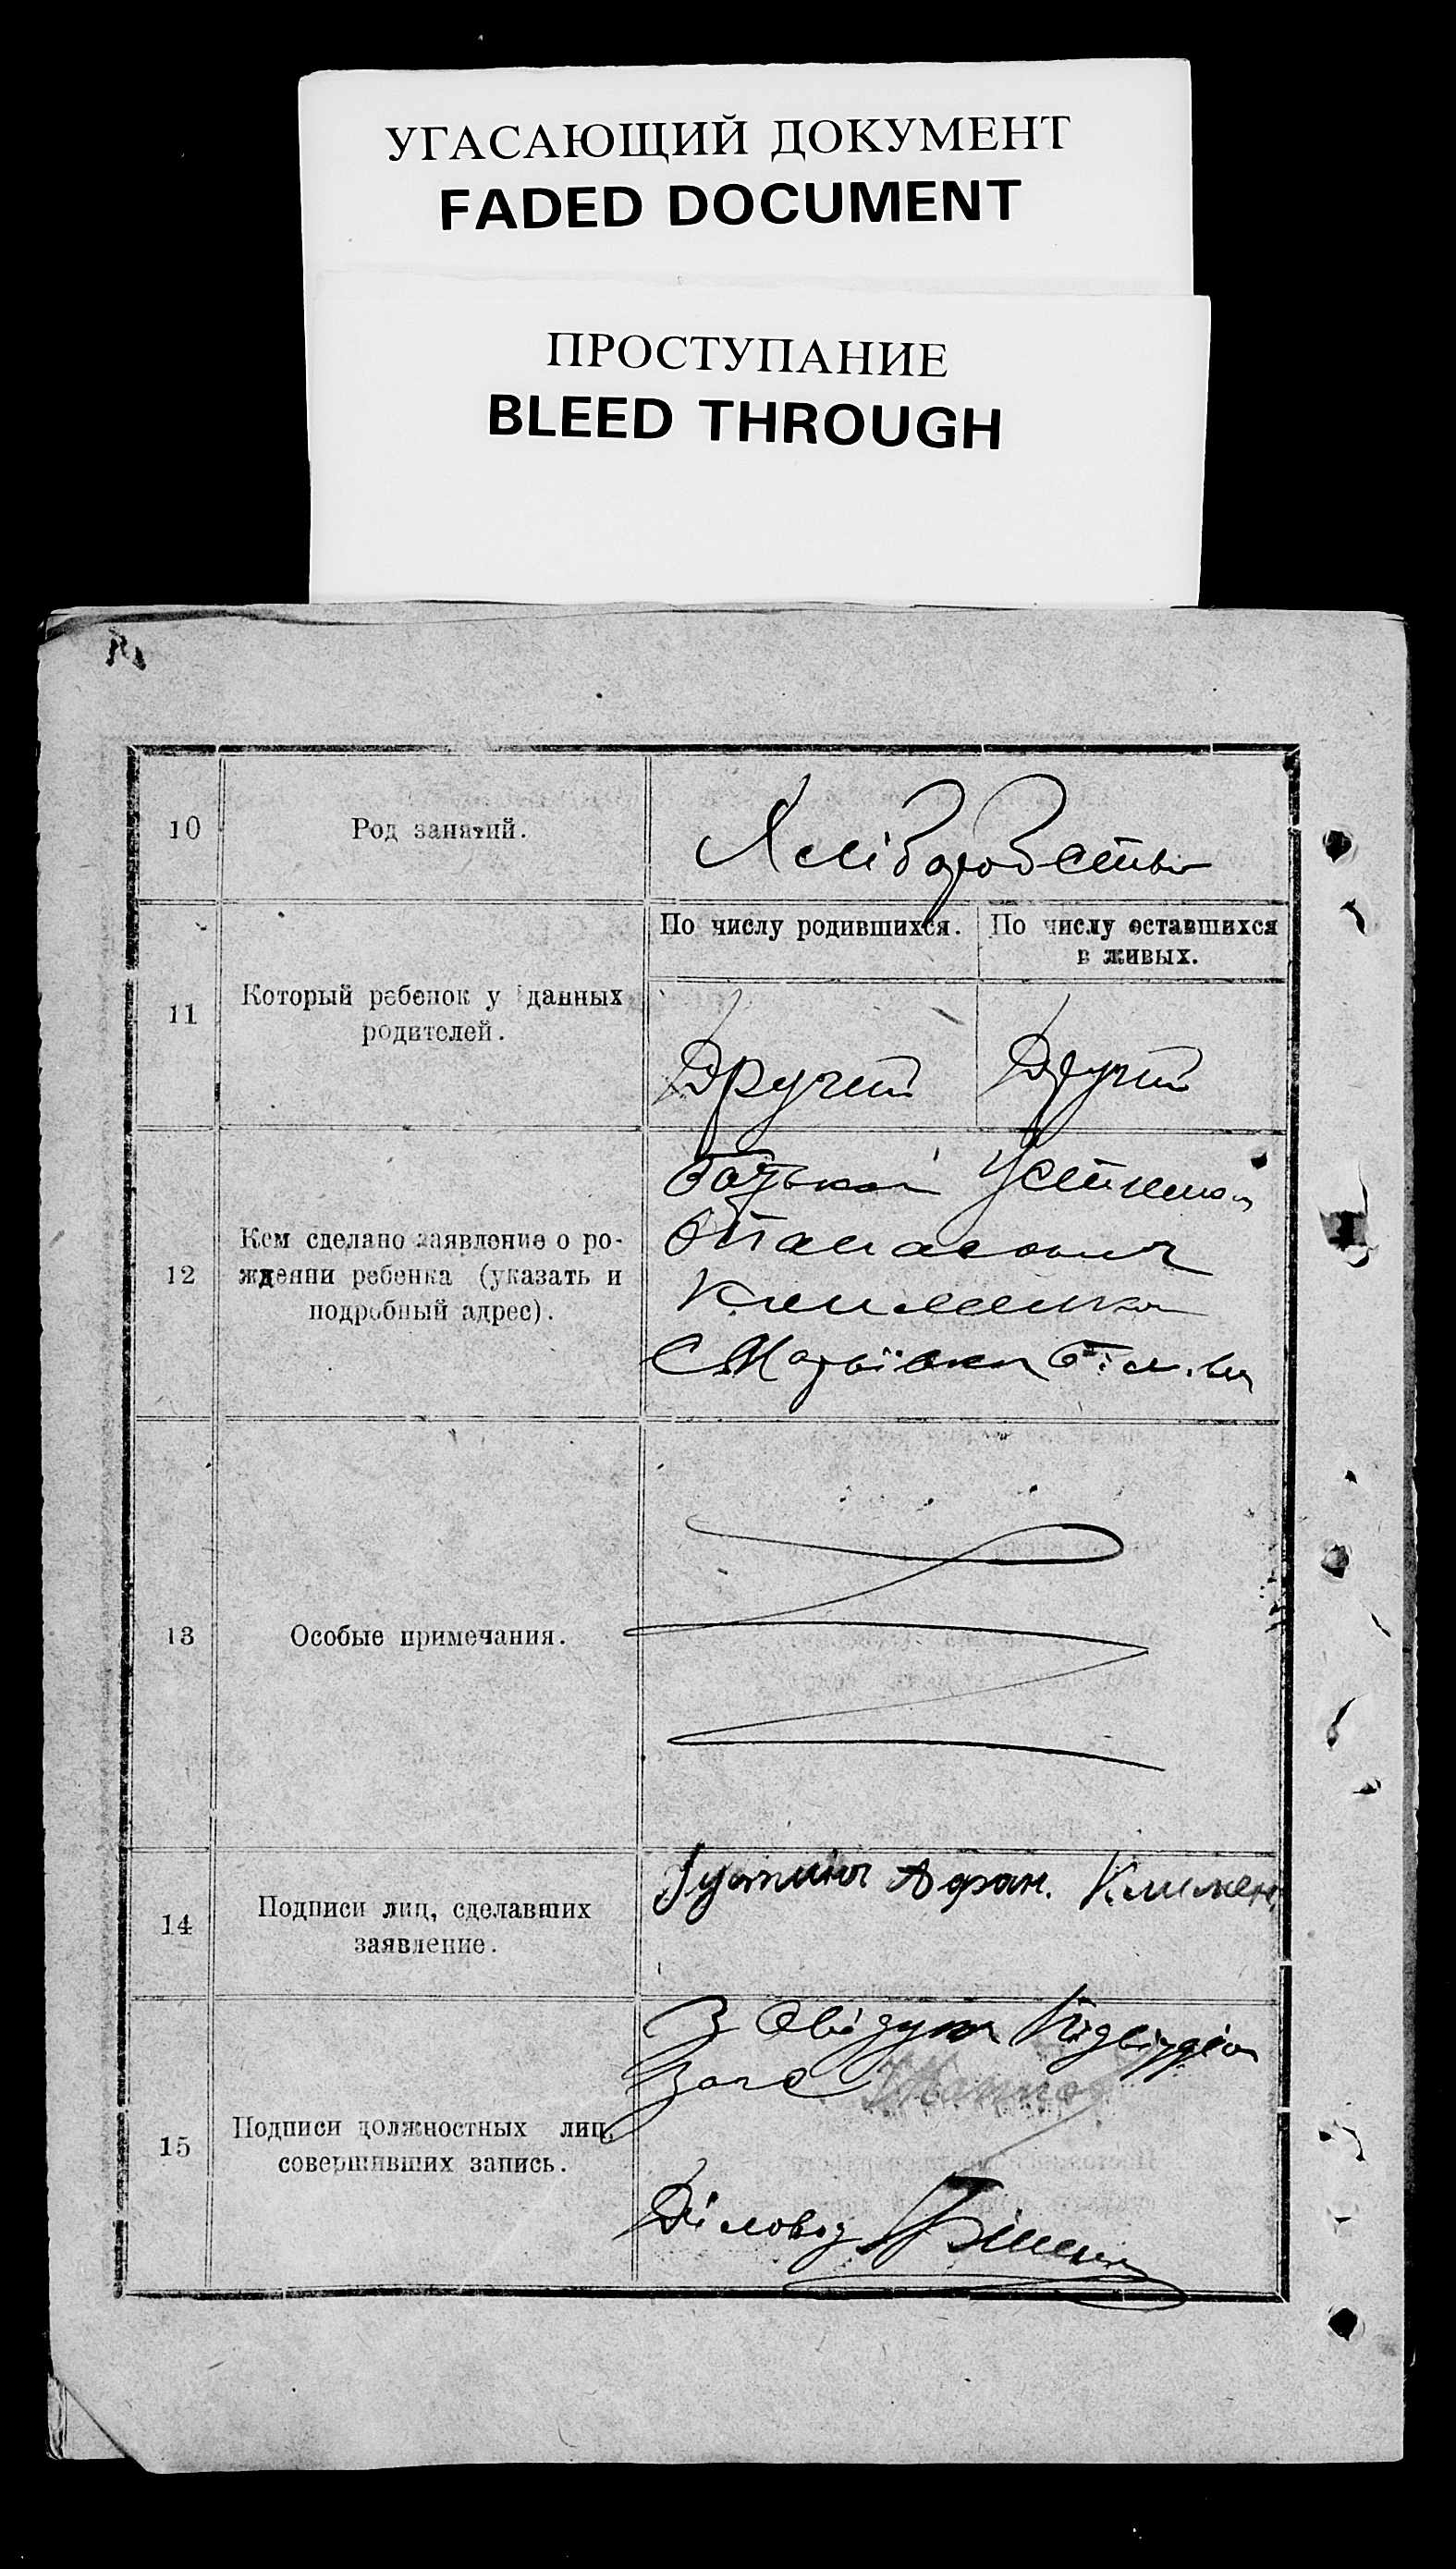 УГАСАЮЩИЙ ДОКУМЕНТ
FADED DOCUMENT
ПРОСТУПАНИЕ
BLEED THROUGH
10
Род занятий.
Хліборобство
11
Который ребенок у данных
родителей.
По числу родившихся.
По числу оставшихся
в живых.
Другий
Другий
12
Кем сделано заявление о ро-
ждении ребенка (указать и
подробный адрес).
Батьком Устином
Опанасович
Клименко
13
Особые примечания.
14
Подписи лиц, сделавших
заявление.
Іустин Афан. Климен
15
Подписи должностных лиц,
совершивших запись.
Діловод